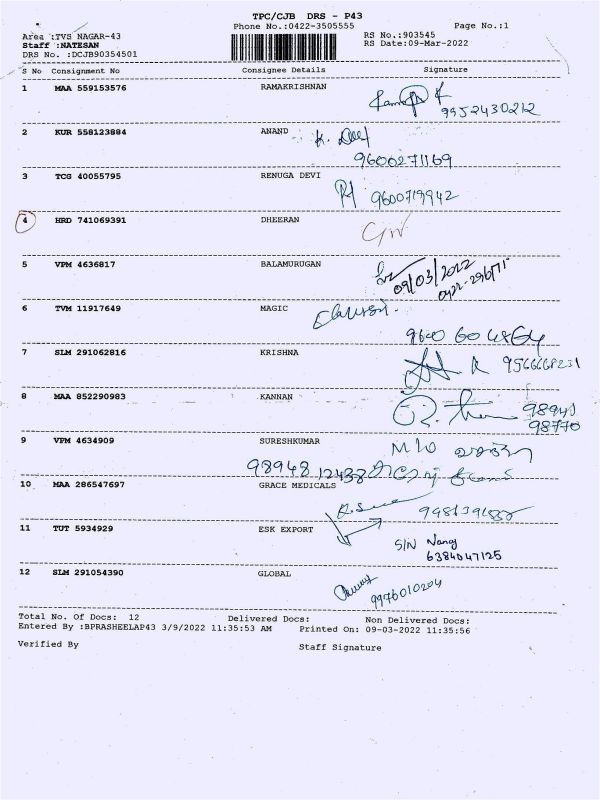 TPC/CJB DRS - P43
Phone No.:0422-3505555 Page No.:1
Area :TVS NAGAR-43 RS No.:903545
Staff :NATESAN RS Date:09-Mar-2022
DRS No. :DCJB90354501
S No Consignment No Consignee Details Signature
1 MAA 559153576 RAMAKRISHNAN
9952430212
2 KUR 558123884 ANAND
9600271169
3 TCG 40055795 RENUGA DEVI
9600719942
4 HRD 741069391 DHEERAN
5 VPM 4636817 BALAMURUGAN
09/03/2022
6 TVM 11917649 MAGIC
9600 604864
7 SLM 291062816 KRISHNA
8 MAA 852290983 KANNAN
98940
98770
9 VPM 4634909 SURESHKUMAR
M/O
98948 12438
10 MAA 286547697 GRACE MEDICALS
11 TUT 5934929 ESK EXPORT
S/N Nancy
6384047125
12 SLM 291054390 GLOBAL
9976010204
Total No. Of Docs: 12 Delivered Docs: Non Delivered Docs:
Entered By :BPRASHEELAP43 3/9/2022 11:35:53 AM Printed On: 09-03-2022 11:35:56
Verified By Staff Signature